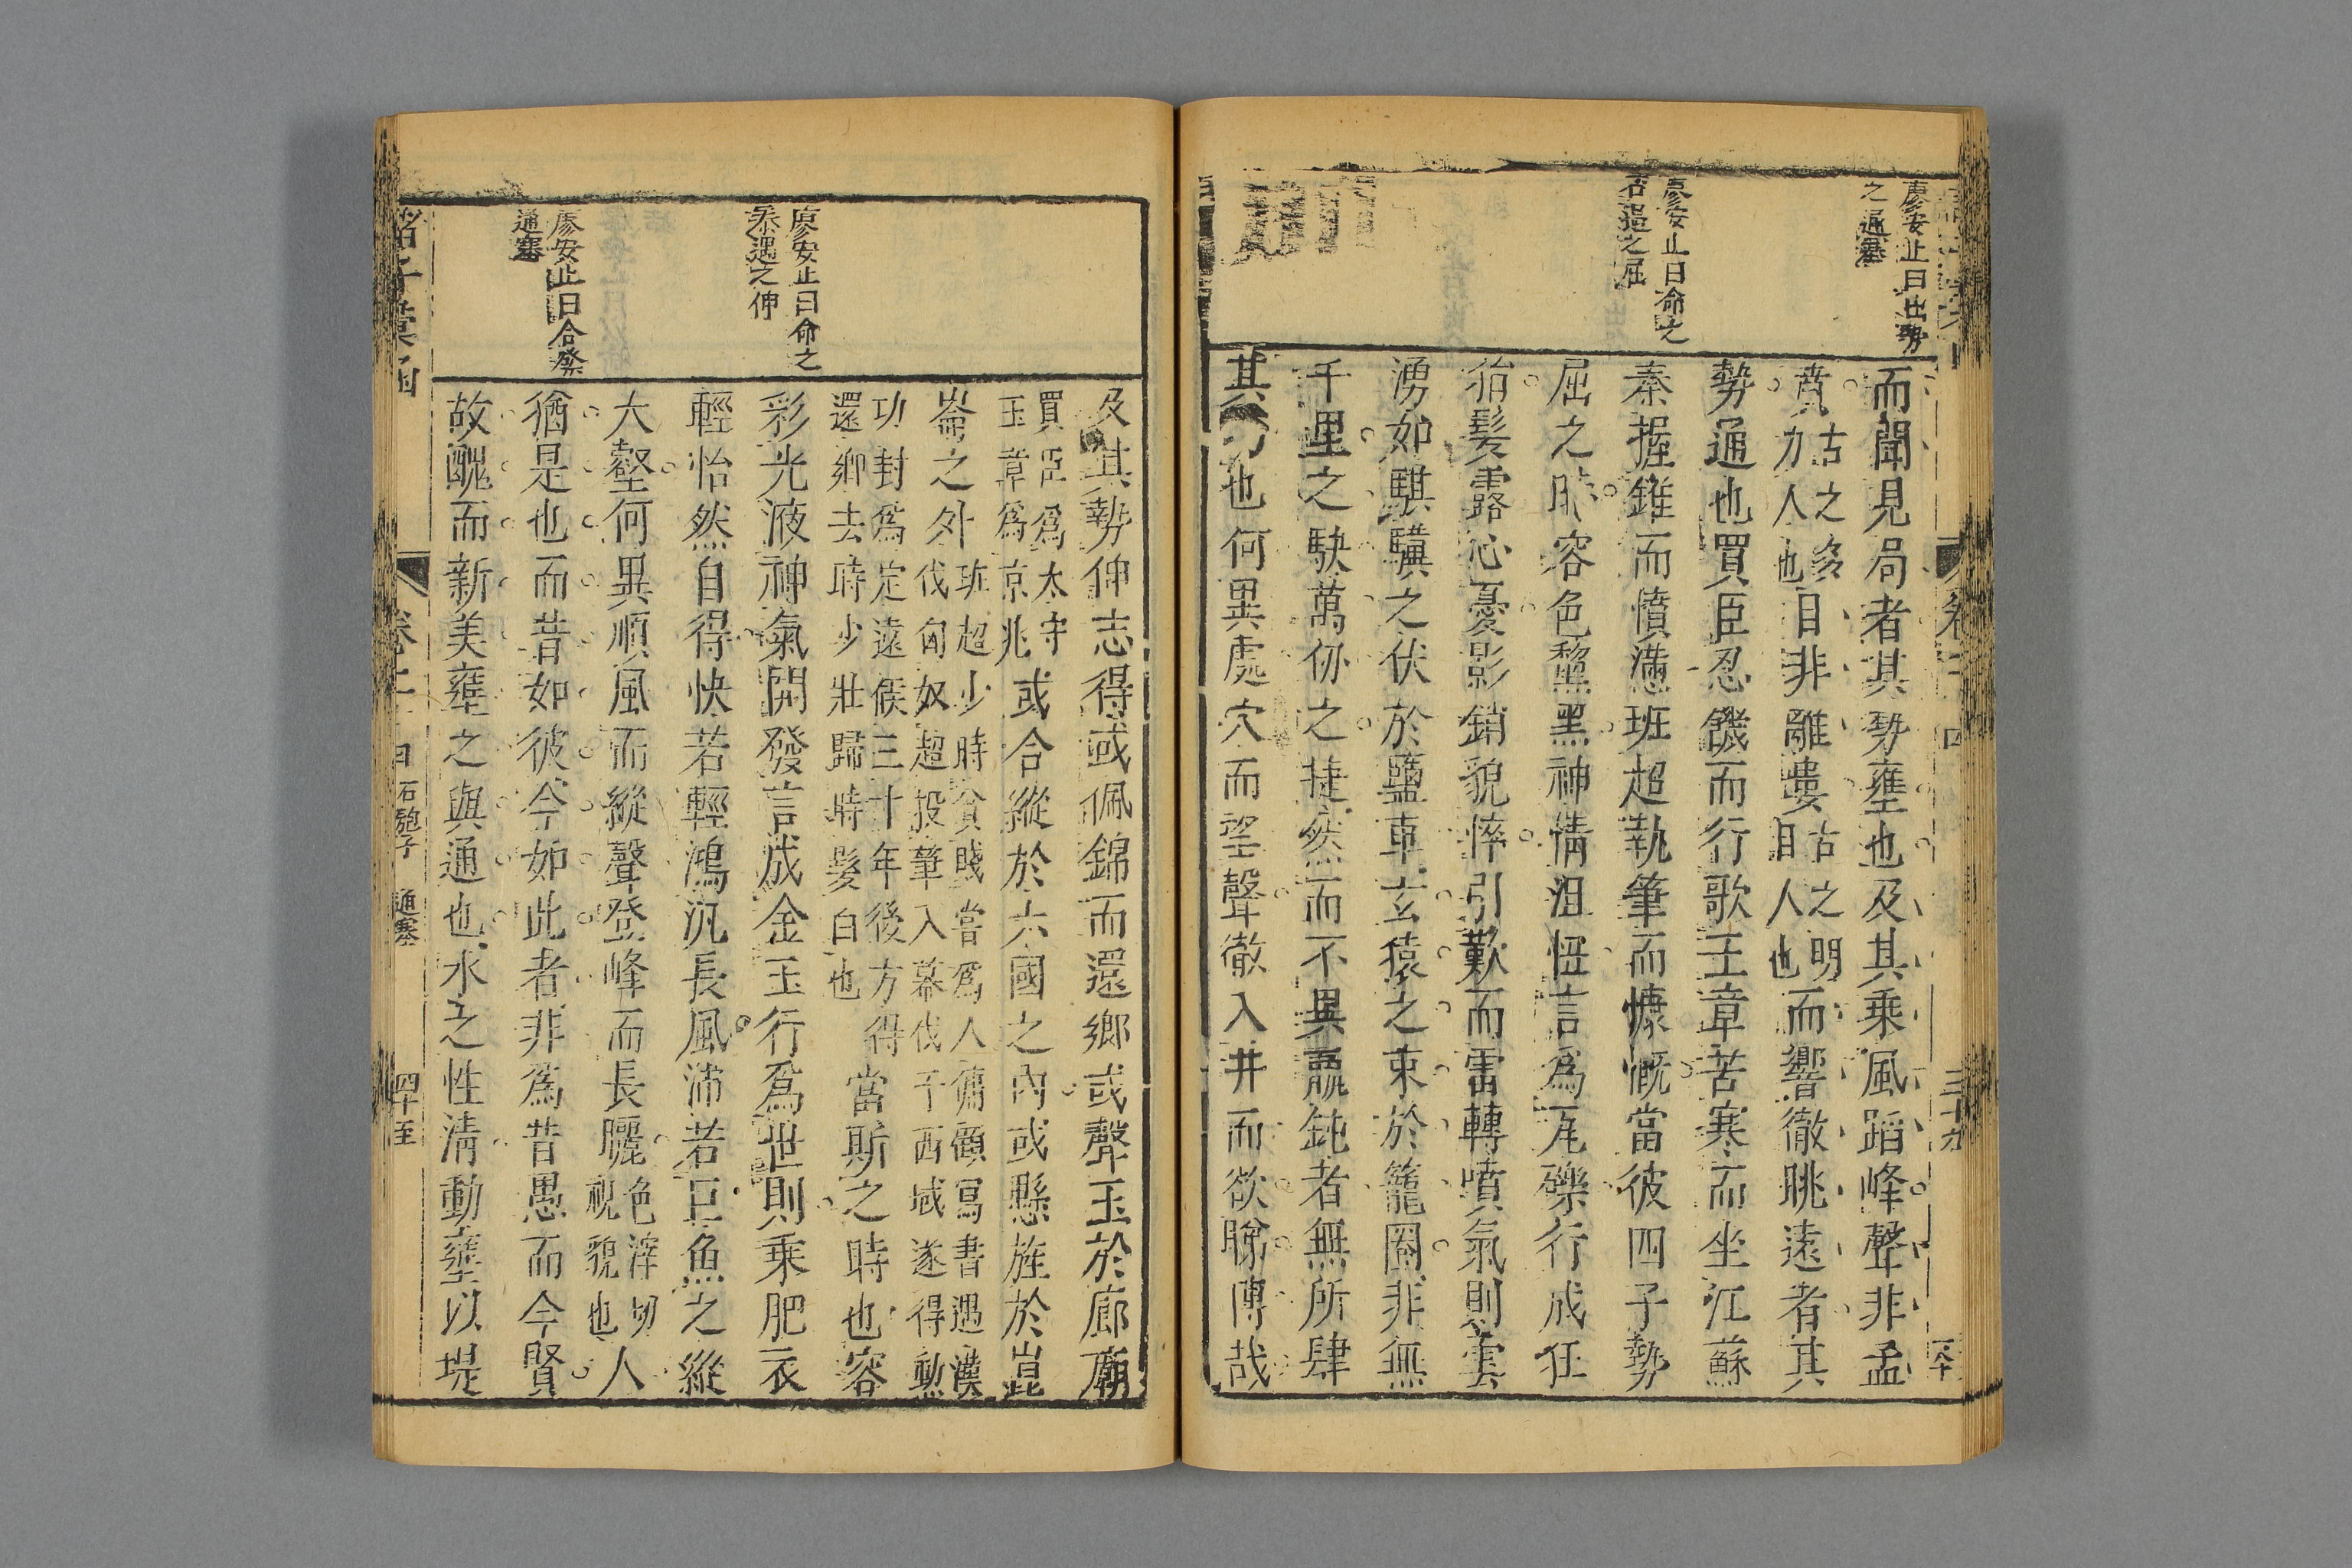 廖安止曰出勢
之通塞
廖安止曰命之
否遇之屈
而聞見局者其勢壅也及其乘風蹈峰聲非孟
賁古之多力人也目非離婁古之明目人也而響徹眺遠者其
勢通也買臣忍饑而行歌王章苦寒而坐江蘇
秦握錐而憤懣班超執筆而慷慨當彼四子勢
屈之時容色黧黑神情沮忸言爲瓦礫行成狂
狷髮露心憂影銷貌悴引歎而雷轉噴氣則雲
湧如騏驥之伏於鹽車玄猿之束於籠圈非無
千里之駃萬仞之捷然而不異羸鈍者無所肆
其巧也何異處穴而望聲徹入井而欲睇博哉
廖安止曰命之
泰遇之伸
廖安止曰合發
通塞
及其勢伸志得或佩錦而還鄉或聲玉於廊廟
買臣爲太守玉章爲京兆或合縱於六國之內或懸旌於崑
崙之外班超少時貧賤嘗爲人傭顧寫書遇漢伐匈奴超投筆入幕伐于西域遂得勲
功封爲定遠侯三十年後方得還鄉去時少壯歸時髮白也當斯之時也容
彩光液神氣開發言成金玉行爲世則乘肥衣
輕怡然自得快若輕鴻汎長風沛若巨魚之縱
大壑何異順風而縱聲登峰而長矖色滓切視貌也人
猶是也而昔如彼今如此者非爲昔愚而今賢
故醜而新美壅之與通也水之性清動壅以堤
卷十二
石匏子
通塞
四十至